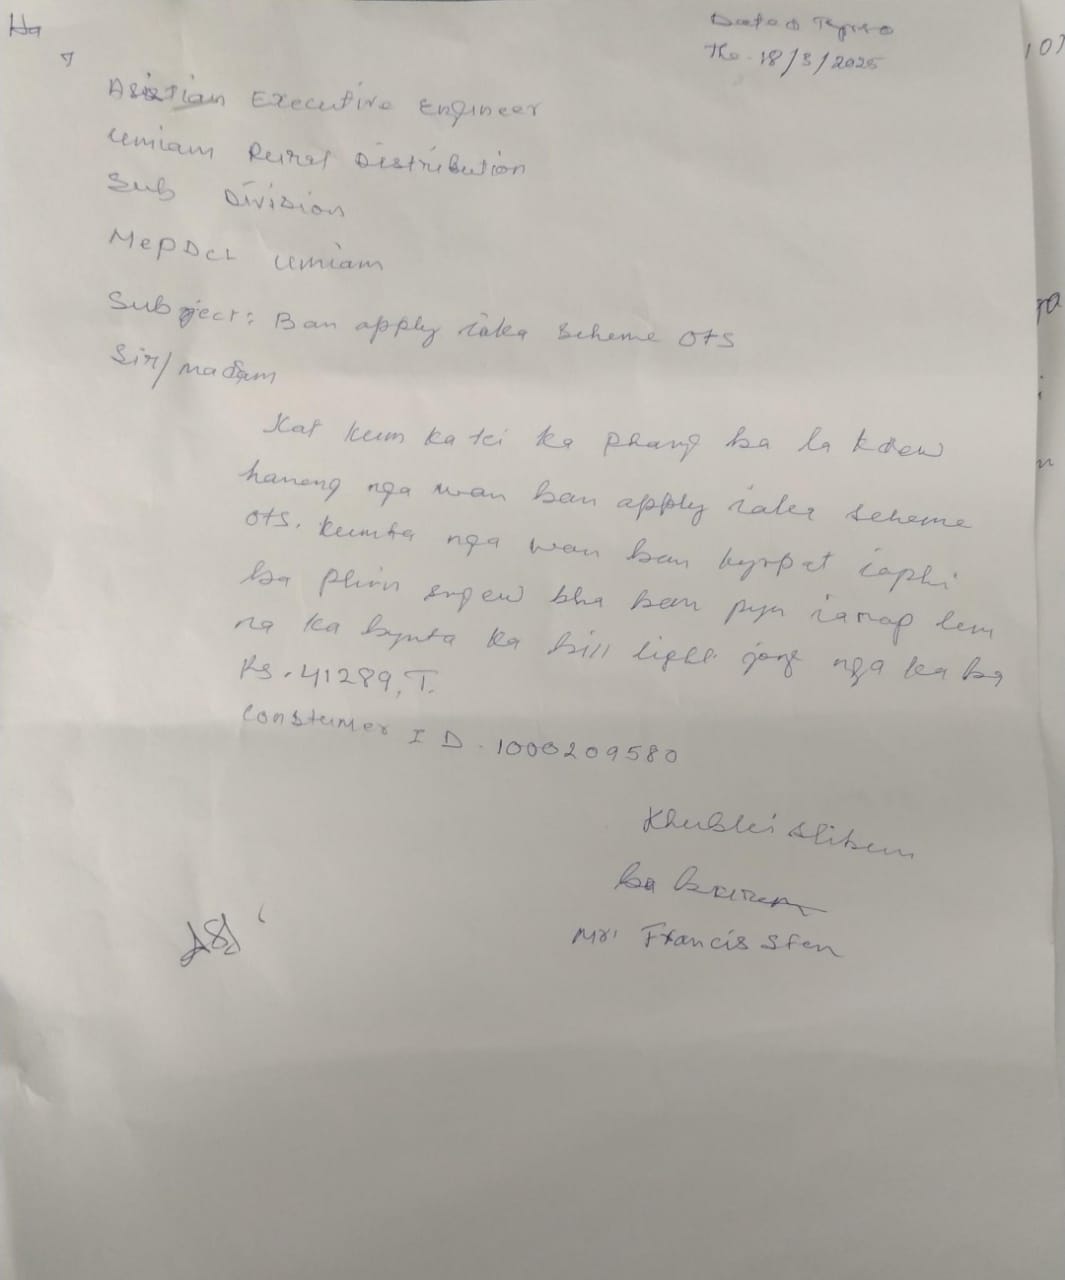 Ha
Dated Tyrso
The. 18/3/2025
Asistian Executive Engineer
Umiam Rural Distribution
Sub Division
MePDCL Umiam
Subject: Ban apply ïaka scheme OTS
Sir/madam
Kat kum ka tei ka phang ba la kdew
haneng nga wan ban apply ïaka scheme
OTS. kumta nga wan ban kyrpat ïaphi
ba phin sngew bha ban pyn ïamap lem
na ka bynta ka bill light jong nga ka ba
Rs. 41289, T.
Constumer ID. 1000209580
Khublei shibun
Mr. Francis Sten